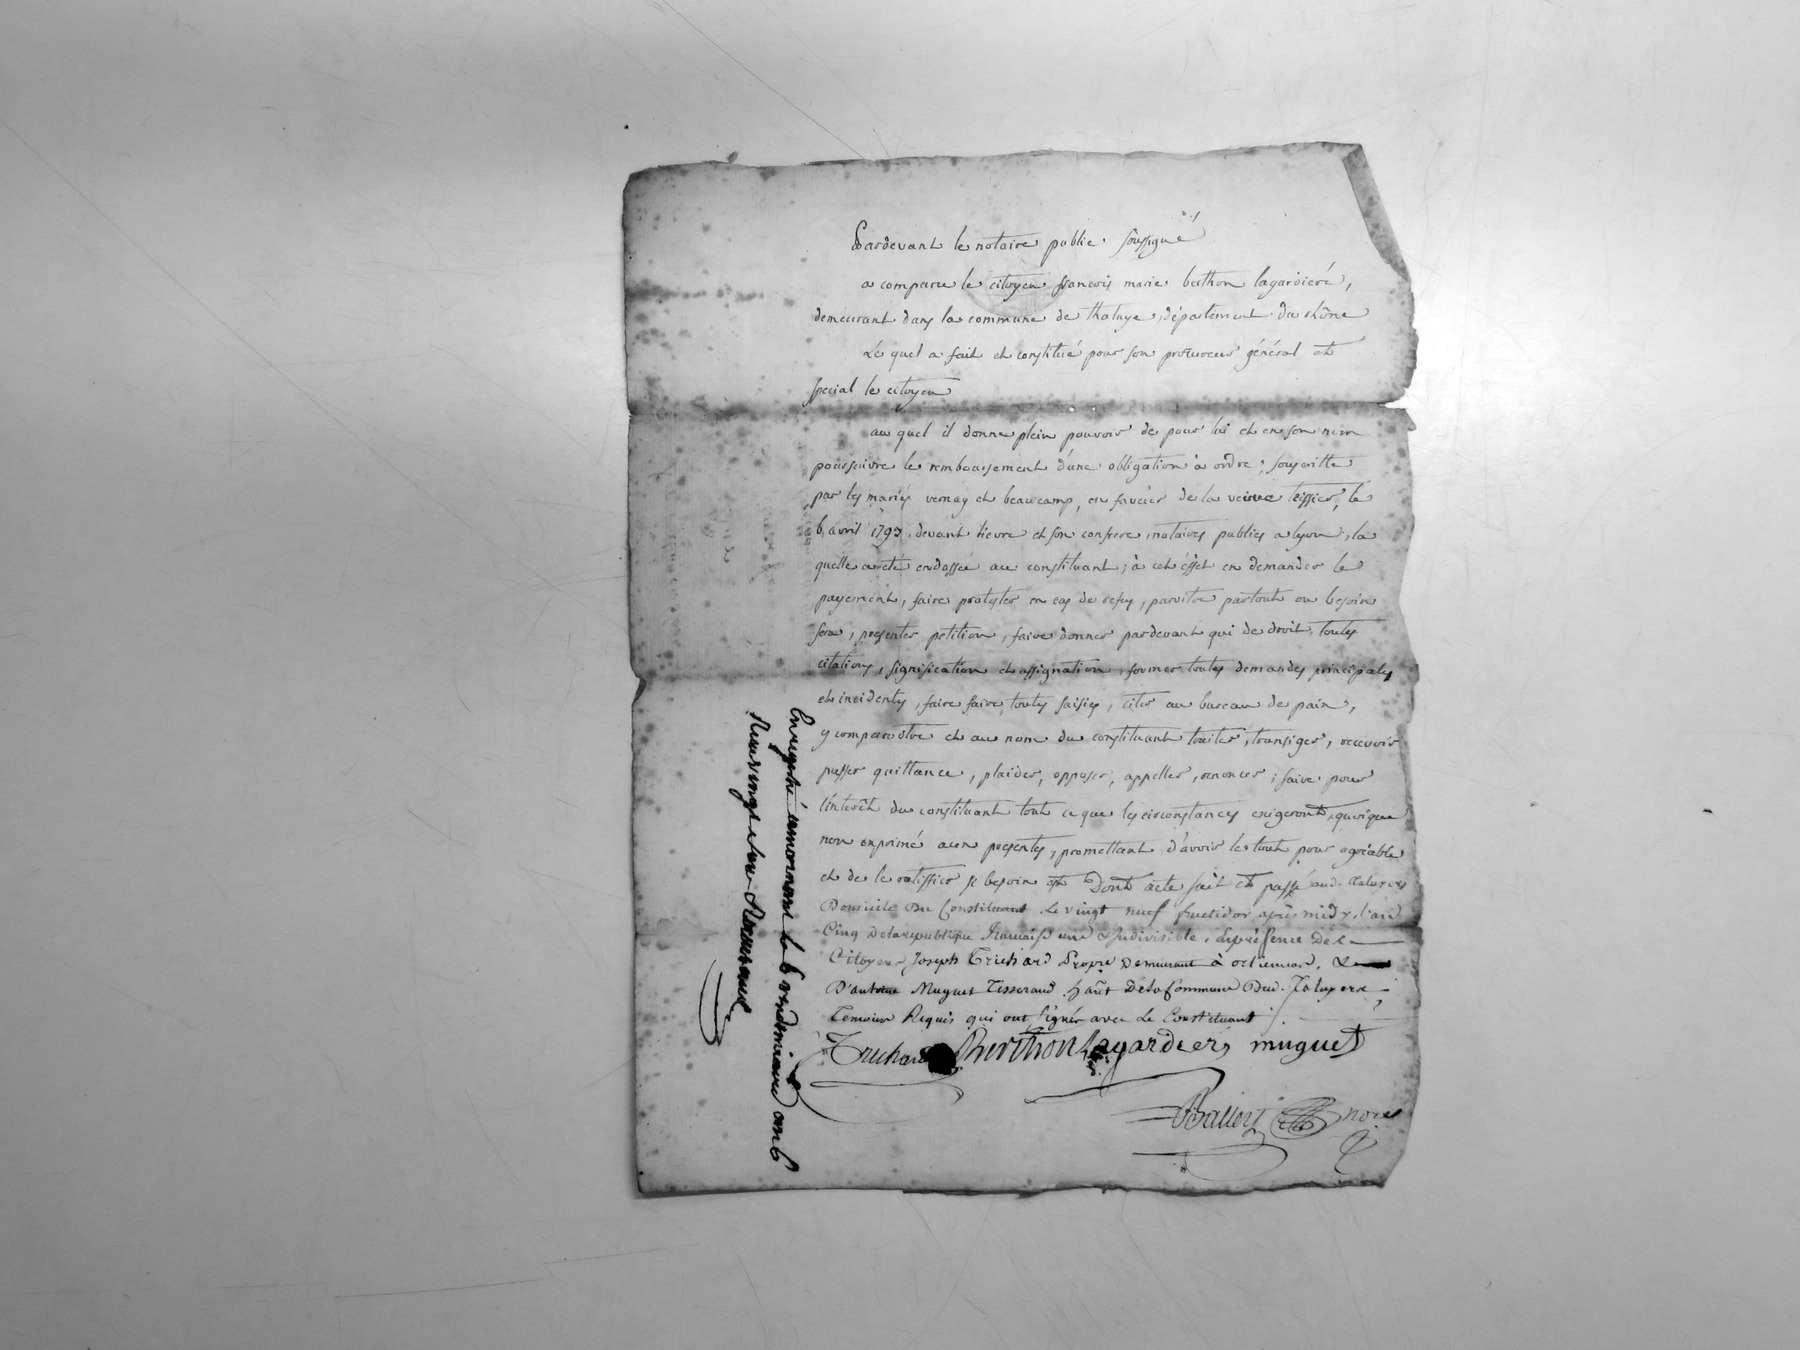 Pardevant le notaire public soussigné
a comparu le citoyen francois marie berthon lagardiere,
demeurant dans la commune de thaluye, département du rhône
Le quel a fait et constitué pour son procureur général et
spécial le citoyen
au quel il donne plein pouvoir de pour lui et en son nom
poursuivre le remboursement d'une obligation à ordre, souscritte
par les mariés vernay et beaucamp, en faveur de la veuve teissier, le
6 avril 1793, devant lievre et son confrere, notaires publics a lyon, la
quelle a eté endossée au constituant; à cet éffet en demander le
payement, faire protester en cas de refus, paroitre partout ou besoin
sera, presenter petition, faire donner pardevant qui de droit toutes
citations, signification et assignation, former toutes demandes principales
et incidentes, faire faire toutes saisies, citer au bureau de paix,
y comparoître et au nom du constituant traiter, transiger, recevoir
passer quittance, plaider, opposer, appeller, renoncer; faire pour
l'interêt du constituant tout ce que les circonstances exigeront, quoique
non exprimé aux presentes, promettant d'avoir le tout pour agréable
et de le ratiffier si besoin est Dont acte fait et passé aud. Taluyers
Domicile Du Constituant Le vingt neuf fructidor après midy, l'an
Cinq De la republique francaise une & Indivisible, En présence De
Citoyen Joseph Truchard Propre Demeurant à orlienas, &
D'antoine Muguet Tisserand habt De la Commune Dud. Taluyers
Temoins Requis qui ont signés avec Le Constituant
Truchard Berthon Lagardieré muguet
Balley nore
Enregistré a mornant le 6 vendemiaire an 6
Reçu vingt